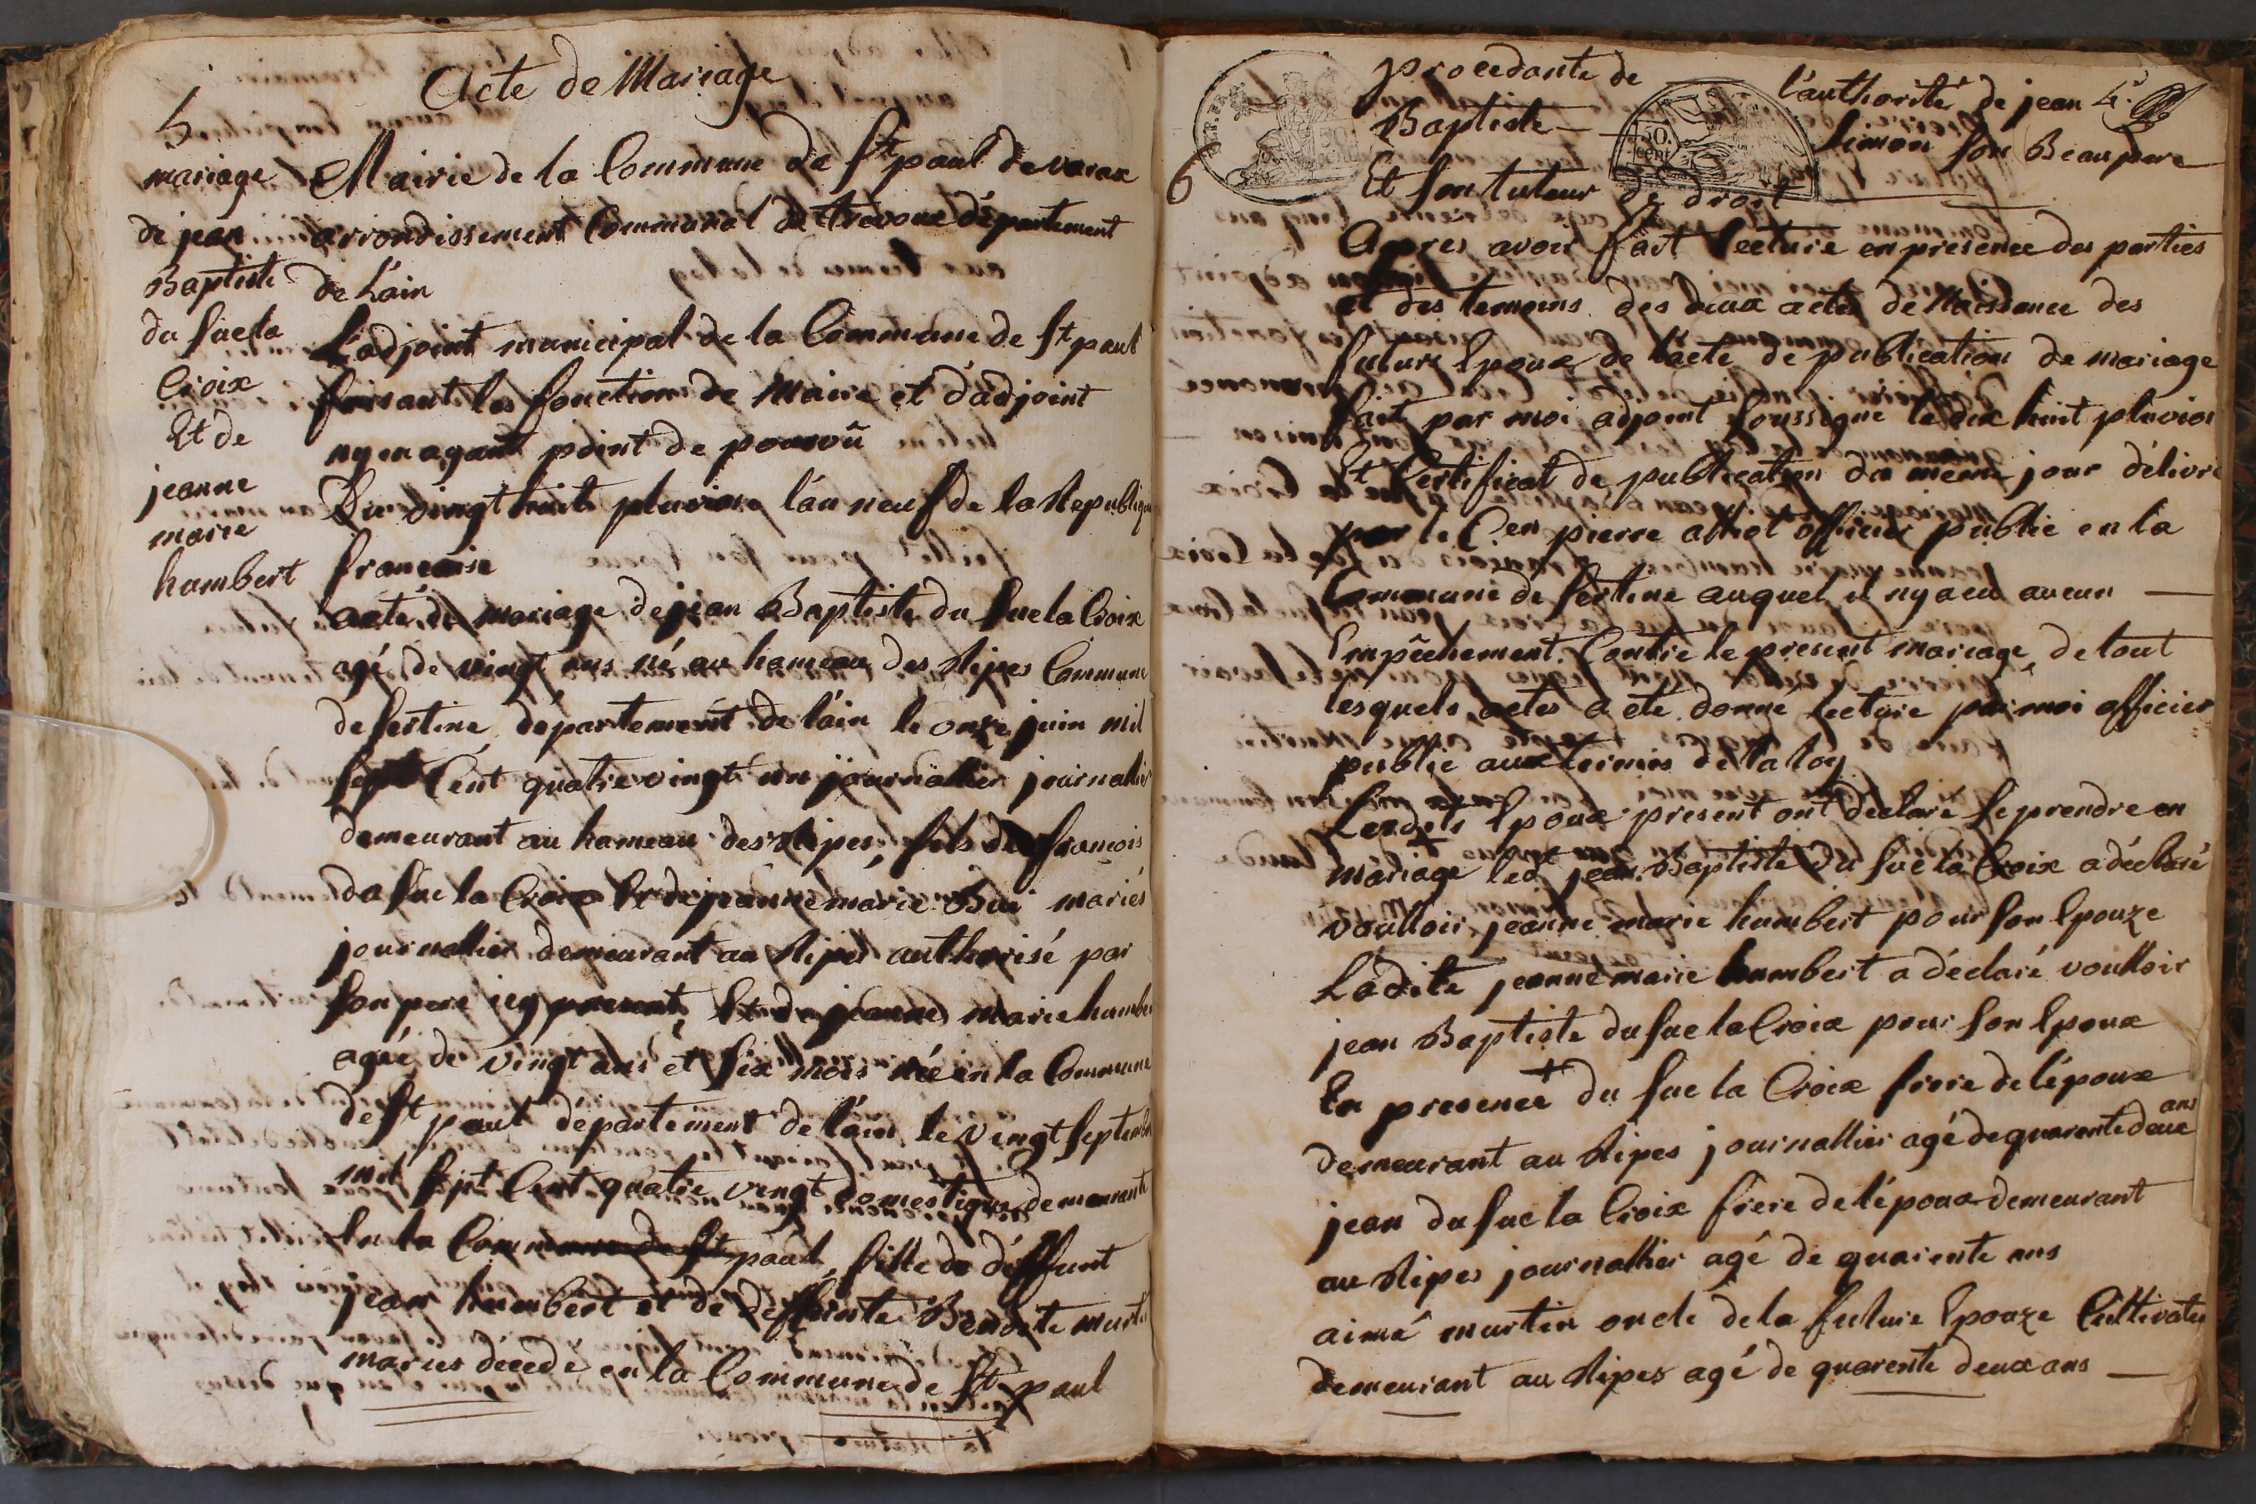 Acte de Mariage
5
mariage
de jean
Baptiste
du sucla
Croix
Et de
jeanne
marie
humbert
Mairie de la Commune de St paul de varax
arrondissement Communal de trevoux département
de L'ain
L'adjoint municipal de la Commune de St paul
faisant les fonction de Maire et d'adjoint
ny en ayant point de pourvû
Du vingt huit pluviose l'an neuf de la Republique
francaise
acte de mariage de jean Baptiste du Suc la Croix
agé de vingt ans né au hameau des Ripes Commune
de Sertine departement de l'ain le onze juin mil
sept Cent quatre vingt un journallier
demeurant au hameau des Ripes, fils de francois
du Suc la Croix Et de jeanne marie Bui mariés
journallier demeurant au Ripes authorisé par
son pere icy present Et de jeanne Marie humbert
agée de vingt ans et six mois née en la Commune
de St paul département de l'ain le vingt septembre
mil sept Cent quatre vingt domestique demeurante
En la Commune de St paul, fille de déffunt
jean humbert et de deffunte Benoite martin
mariés decedé en la Commune de St paul
procedante de l'authorité de jean 4e
Baptiste Simon son Beaupere
6
50. cent
Et son tuteur de droit
Apres avoir fait Lecture en presence des parties
et des temoins des deux actes de Naissance des
futurs Epoux de l'acte de publication de mariage
fait par moi adjoint soussigné le dix huit pluvios
Et Certificat de publication du meme jour délivré
par le Cen pierre officier public en la
Commune de Sertine auquel il ny a eu aucun
Empêchement Contre le present mariage, de tout
lesquels actes a eté donné lecture par moi officier
public aux termes de la loy
Lesdits Epoux present ont declaré se prendre en
mariage led jean Baptiste Du Suc la Croix a déclaré
voulloir jeanne marie humbert pour son Epouze
Ladite jeanne marie humbert a déclaré voulloir
jean Baptiste du Suc la Croix pour son Epoux
En presence + du Suc la Croix frere de l'époux
demeurant au Ripes journallier agé de quarente deux ans
jean du Suc la Croix frere de l'époux demeurant
au Ripes journallier agé de quarente ans
aimé martin oncle de la future Epouze Cultivateur
demeurant au Ripes agé de quarente deux ans